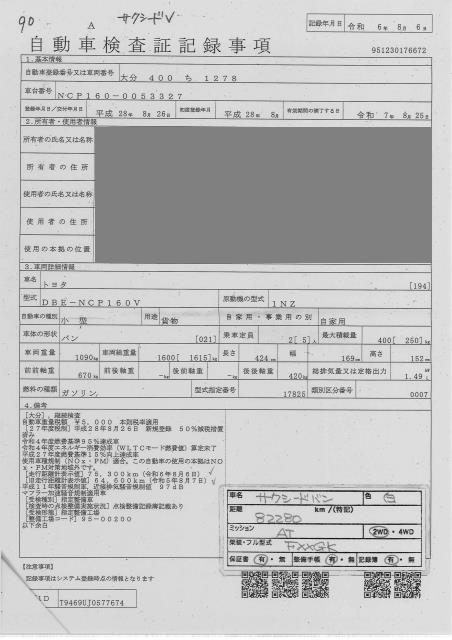 90
A サクシードV
記録年月日 令和 6年 8月 6日
自動車検査証記録事項
951230176672
1.基本情報
自動車登録番号又は車両番号 大分 400 ち 1278
車台番号 NCP160-0053327
登録年月日/交付年月日 平成 28年 8月 26日 初度登録年月 平成 28年 8月 有効期間の満了する日 令和 7年 8月 25日
2.所有者・使用者情報
所有者の氏名又は名称
所有者の住所
使用者の氏名又は名称
使用者の住所
使用の本拠の位置
3.車両詳細情報
車名 トヨタ [194]
型式 DBE-NCP160V 原動機の型式 1NZ
自動車の種別 小型 用途 貨物 自家用・事業用の別 自家用
車体の形状 バン [021] 乗車定員 2[ 5]人 最大積載量 400[ 250]kg
車両重量 1090kg 車両総重量 1600[ 1615]kg 長さ 424cm 幅 169cm 高さ 152cm
前前軸重 670kg 前後軸重 -kg 後前軸重 -kg 後後軸重 420kg 総排気量又は定格出力 1.49L
燃料の種類 ガソリン 型式指定番号 17825 類別区分番号 0007
4.備考
[大分], 継続検査
自動車重量税額 ¥5,000 本則税率適用
[27年度税制]平成28年8月26日 新規登録 50%減税措置
済み
令和4年度燃費基準95%達成車
令和4年度エネルギー消費効率(WLTCモード燃費値)算定未了
平成27年度燃費基準15%向上達成車
使用車種規制(NOx・PM)適合、この自動車の使用の本拠はNO
x・PM対策地域外です。
[走行距離計表示値]75,300km(令和6年8月6日)
[旧走行距離計表示値]64,600km(令和5年8月7日)
平成11年騒音規制車、近接排気騒音規制値 97dB
マフラー加速騒音規制適用車
[受検種別]指定整備車
[検査時の点検整備実施状況]点検整備記録簿記載あり
[受検形態]指定整備工場
[整備工場コード]95-00200
以下余白
車名 サクシードバン 色 白
距離 82280 km/(特記)
ミッション AT 2WD・4WD
架装・フル型式
保証書 有・無 整備手帳 有・無 記録簿 有・無
[注意事項]
記録事項はシステム登録時点の情報となります
T9469UJ0577674